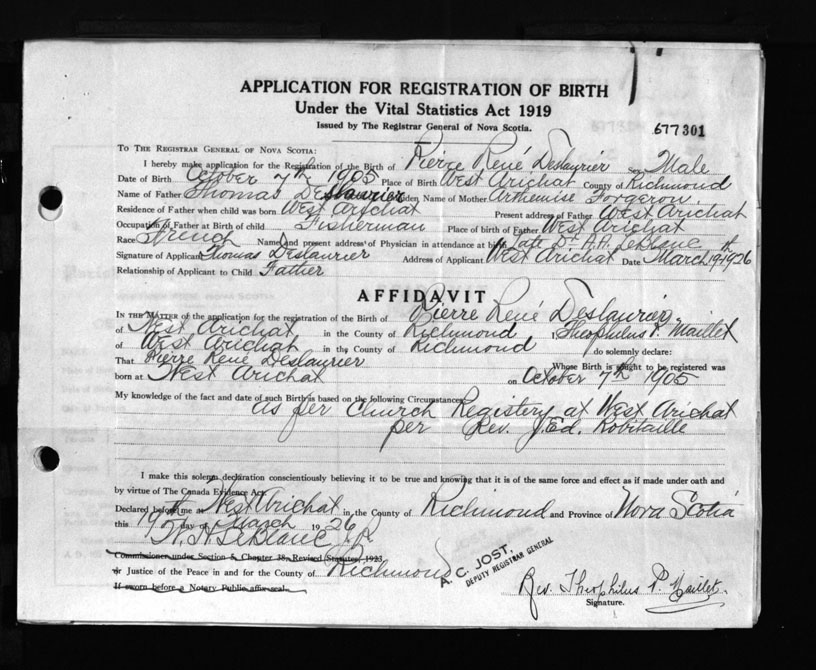 APPLICATION FOR REGISTRATION OF BIRTH
Under the Vital Statistics Act 1919
Issued by The Registrar General of Nova Scotia.
677301
TO THE REGISTRAR GENERAL OF NOVA SCOTIA:
I hereby make application for the Registration of the Birth of Pierre René Deslaurier Sex Male
Date of Birth October 7th 1905 Place of Birth West Arichat County of Richmond
Name of Father Thomas Deslaurier Maiden Name of Mother Arthemise Forgeron.
Residence of Father when child was born West Arichat Present address of Father West Arichat
Occupation of Father at Birth of child Fisherman Place of birth of Father West Arichat
Race French Name and present address of Physician in attendance at birth Late Dr. H.H. LeBlanc
Signature of Applicant Thomas Deslaurier Address of Applicant West Arichat Date March 19th 1926
Relationship of Applicant to Child Father
AFFIDAVIT
IN THE MATTER of the application for registration of the Birth of Pierre René Deslaurier
of West Arichat in the County of Richmond Theophilus P. Maillet
of West Arichat in the County of Richmond do solemnly declare:
That Pierre René Deslaurier Whose Birth is sought to be registered was
born at West Arichat on October 7th 1905
My knowledge of the fact and date of such Birth is based on the following Circumstances:
as per Church Registery at West Arichat
per Rev. J. Ed. Robitaille
I make this solemn declaration conscientiously believing it to be true and knowing that it is of the same force and effect as if made under oath and
by virtue of The Canada Evidence Act.
Declared before me at West Arichat in the County of Richmond and Province of Nova Scotia
this 19th day of March 1926
LeBlanc J.P.
Commissioner under Section 5, Chapter 38, Revised Statutes, 1923
or Justice of the Peace in and for the County of Richmond
If sworn before a Notary Public affix seal.
A. C. JOST,
DEPUTY REGISTRAR GENERAL
Rev. Theophilus P. Maillet.
Signature.